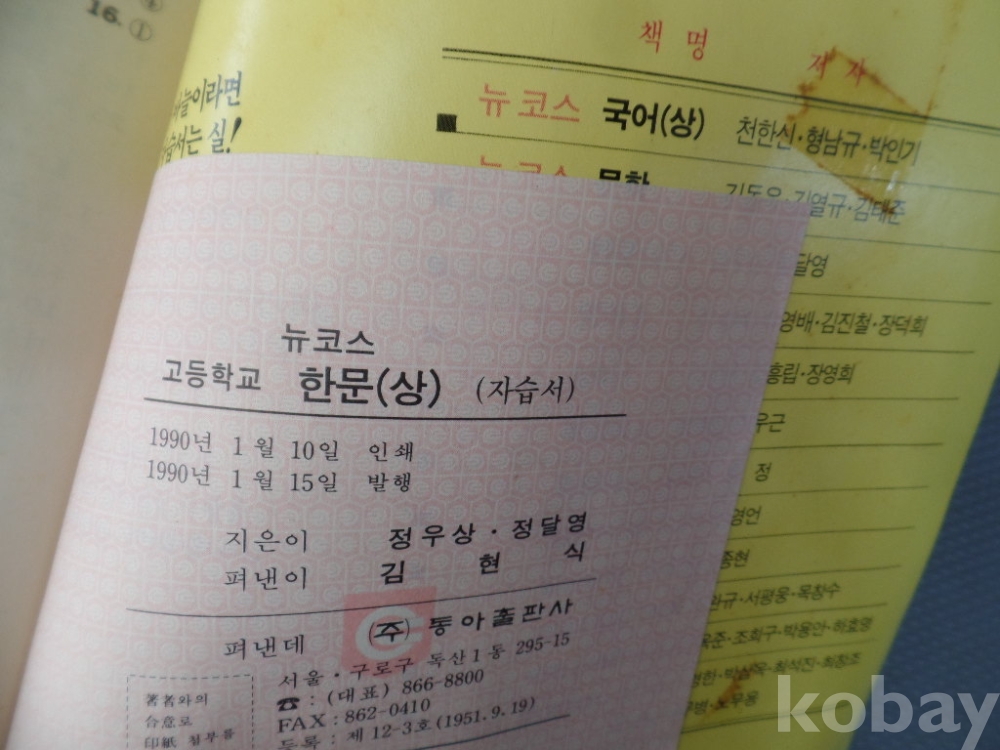 16. ①
책 명 저 자
뉴 코스 국어(상) 천한신·형남규·박인기
뉴 코스 문학 김열규·김태준
달영
영배·김진철·장덕희
홍립·장영희
우근
정
영언
종현
완규·서평웅·옥창수
습서는 실!
뉴코스
고등학교 한문(상) (자습서)
1990년 1월 10일 인쇄
1990년 1월 15일 발행
지은이 정우상·정달영
펴낸이 김현식
펴낸데 ㈜ 동아출판사
서울·구로구 독산1동 295-15
☎ : (대표) 866-8800
FAX : 862-0410
등록 : 제 12-3호 (1951. 9. 19)
著者와의
合意로
印紙 첨부를
kobay